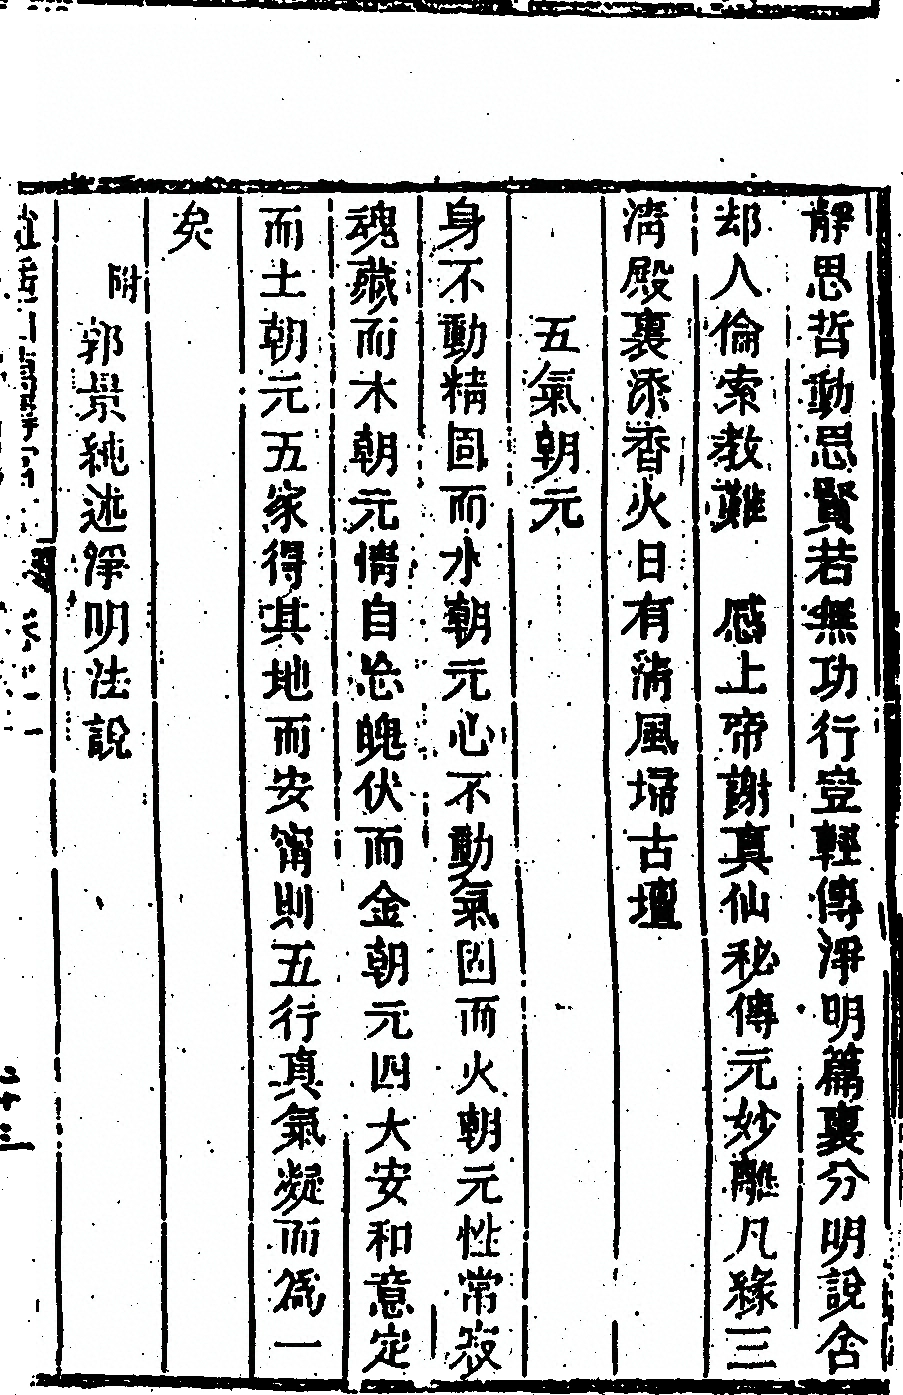 靜思哲動思賢若無功行豈輕傳淨明篇裏分明說舍
却人倫索教難　感上帝謝真仙秘傳元妙離凡緣三
清殿裏添香火日有清風埽古壇
五氣朝元
身不動精固而水朝元心不動氣固而火朝元性常寂
魂藏而木朝元情自忘魄伏而金朝元四大安和意定
而土朝元五家得其地而安甯則五行真氣凝而為一
矣
附
郭景純述淨明法說
二十三